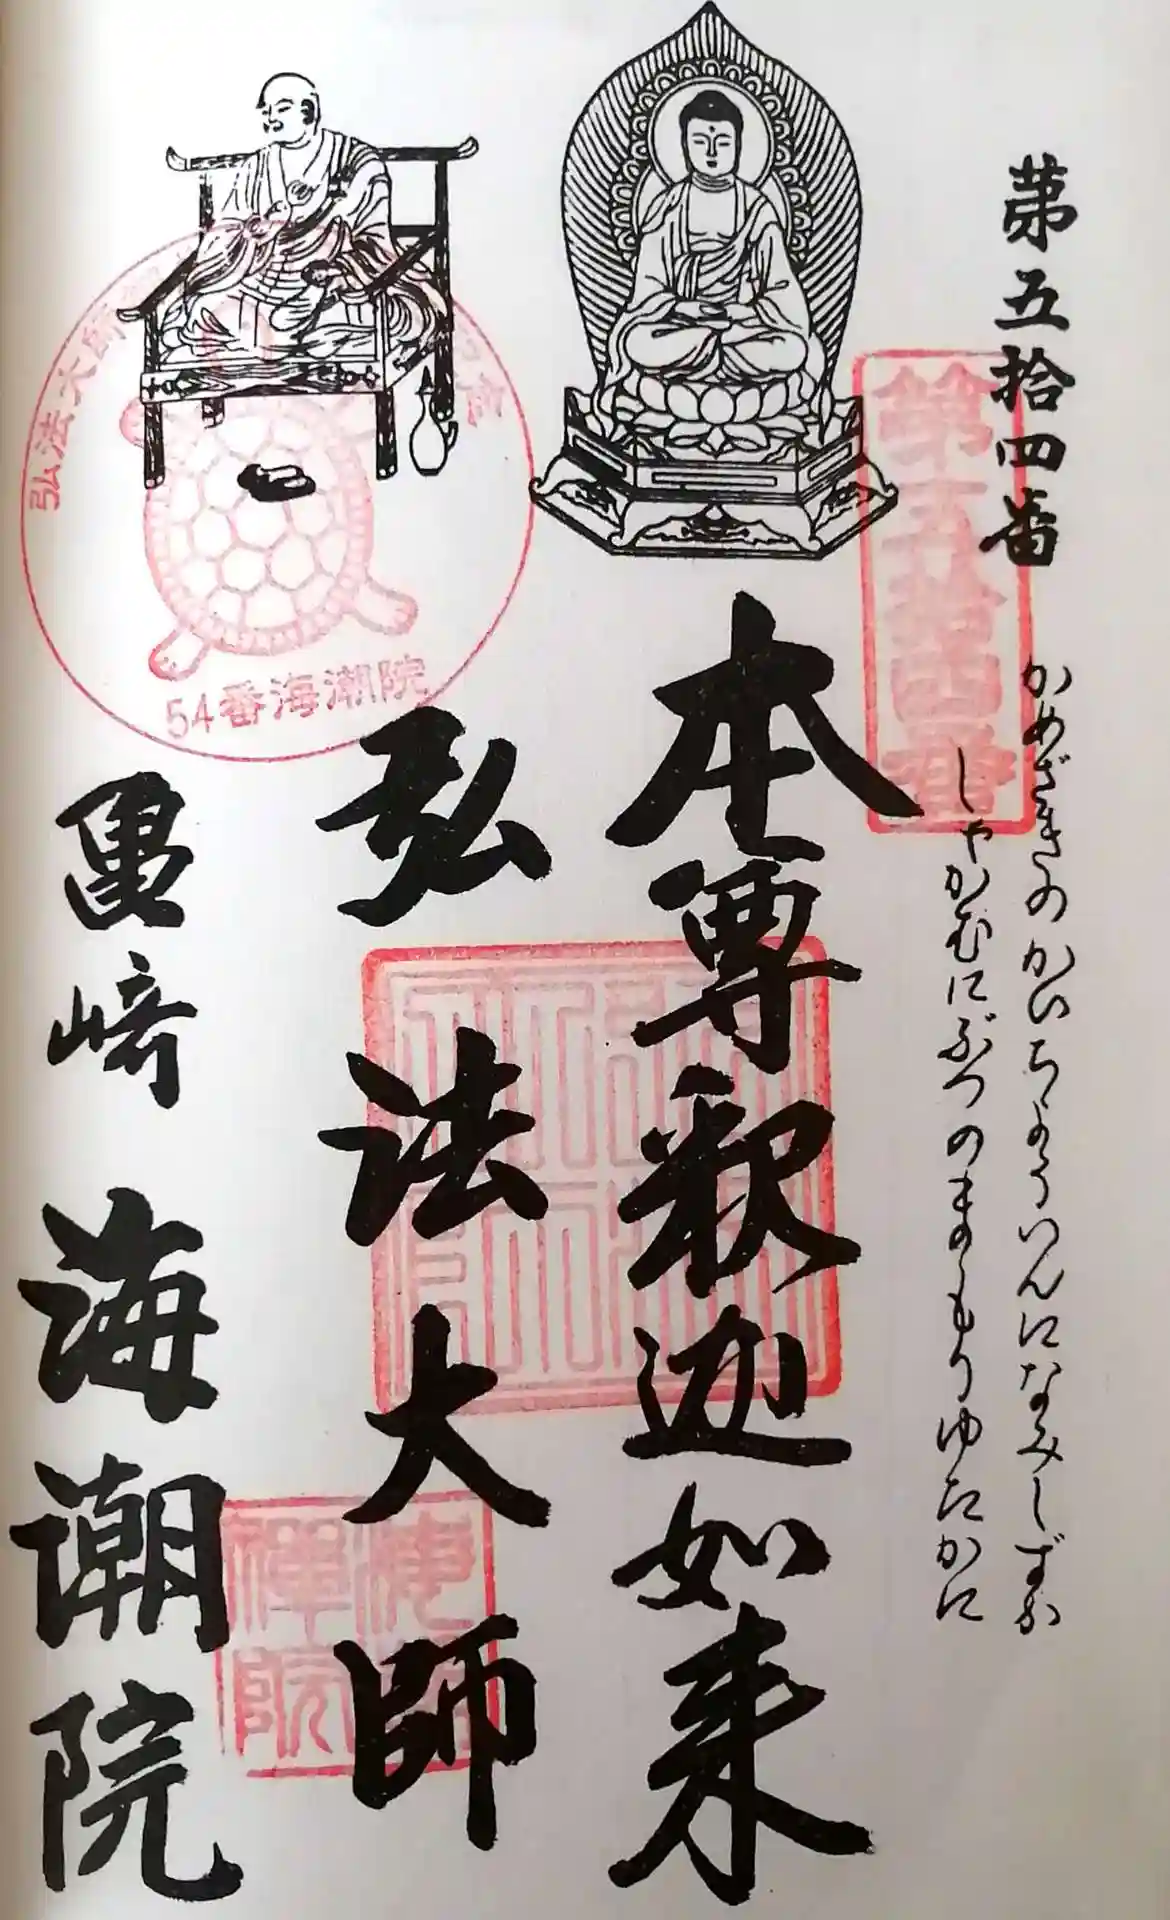 第五拾四番
第五拾四番
かめざきの かいちようういんになみしずか
しゃかむにぶつのまもりゆたかに
本尊釈迦如来
弘法大師
亀崎 海潮院
弘法大師
54番海潮院
禅院